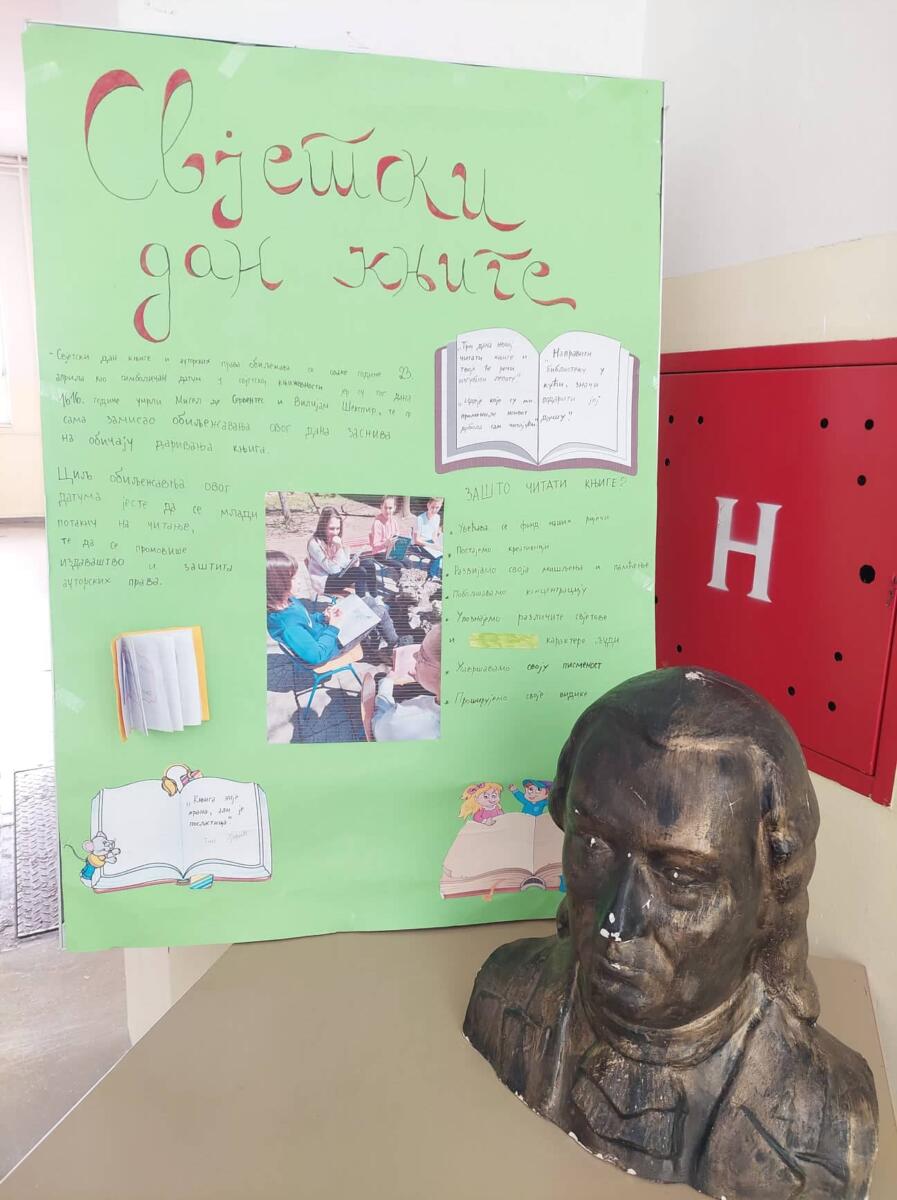 Свјетски
дан књиге
- Свјетски дан књиге и ауторских права обиљежава се сваке године 23.
априла као симболичан датум у свјетској књижевности јер су тог дана
1616. године умрли Мигел де Сервантес и Вилијам Шекспир, те се
сама замисао обиљежавања овог дана заснива
на обичају даривања књига.
Циљ обиљежавања овог
датума јесте да се млади
потакну на читање,
те да се промовише
издаваштво и заштита
ауторских права.
„Три дана немој
читати књиге и
твоје ће речи
изгубити лепоту"
„Људе који су ми
променили живот
добила сам читајући"
„Направити
библиотеку у
кући, значи
подарити јој
душу!"
ЗАШТО ЧИТАТИ КЊИГЕ?
• Увећава се фонд наших ријечи
• Постајемо креативнији
• Развијамо своја мишљења и памћење
• Побољшавамо концентрацију
• Упознајемо различите свјетове
и карактере људи
• Усавршавамо своју писменост
• Проширујемо своје видике
„Књига није
храна, али је
посластица"
H